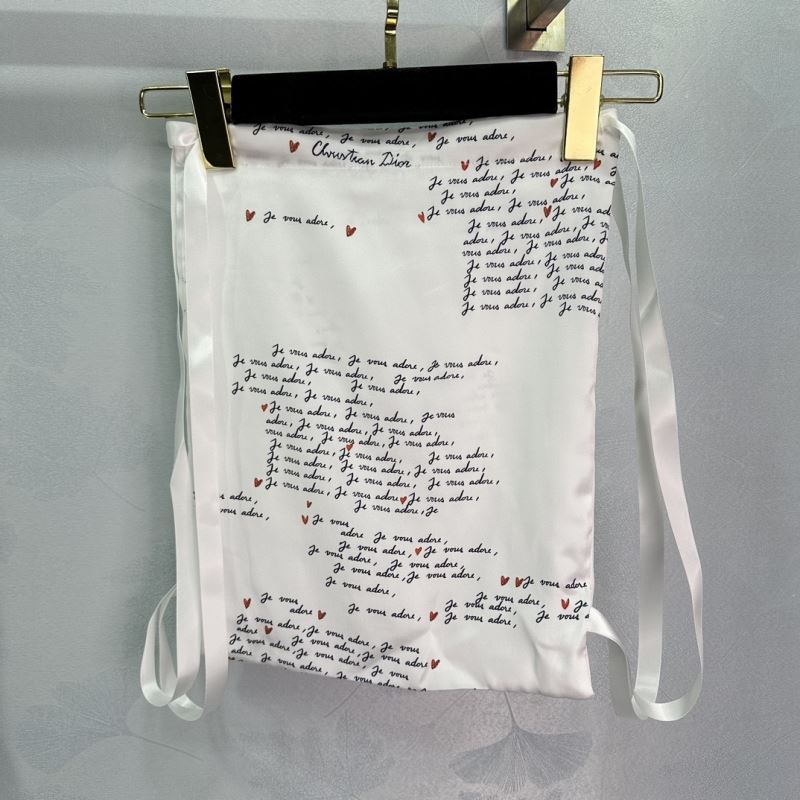 Je vous adore, Je vous adore, Je vous adore,
Christian Dior
Je vous adore,
Je vous adore, Je vous
Je vous adore, Je vous
Je vous adore,
Je vous adore, Je vous adore,
Je vous adore, Je vous ad
Je vous adore, Je vous
adore, Je vous adore, Je
vous adore, Je vous adore,
Je vous adore, Je vous
Je vous adore, Je vous
Je vous adore, Je vous
Je vous adore, Je vous
Je vous adore, Je vous adore, Je vous adore,
Je vous adore, Je vous adore, Je vous adore,
Je vous adore, Je vous adore,
Je vous adore, Je vous adore,
Je vous adore, Je vous adore, Je vous
adore, Je vous adore, Je vous adore,
vous adore, Je vous adore, Je vous adore,
Je vous adore, Je vous adore, Je vous adore,
Je vous adore, Je vous adore, Je vous adore,
Je vous adore, Je vous adore, Je vous adore,
Je vous adore, Je vous adore, Je vous adore,
Je vous adore, Je vous adore, Je vous adore,
us adore, Je vous adore, Je
vous adore, Je vous
adore Je vous adore,
Je vous adore, Je vous adore,
Je vous adore, Je vous adore,
Je vous adore, Je vous adore,
Je vous adore, Je vous adore,
Je vous adore, Je vous adore,
Je vous adore, Je vous adore, Je vous adore, Je
Je vous adore, Je vous adore, Je vous
adore Je vous adore, Je vous
Je vous adore, Je vous adore
Je vous adore, Je vous adore,
adore, Je vous adore, Je vous
Je vous adore, Je vous adore,